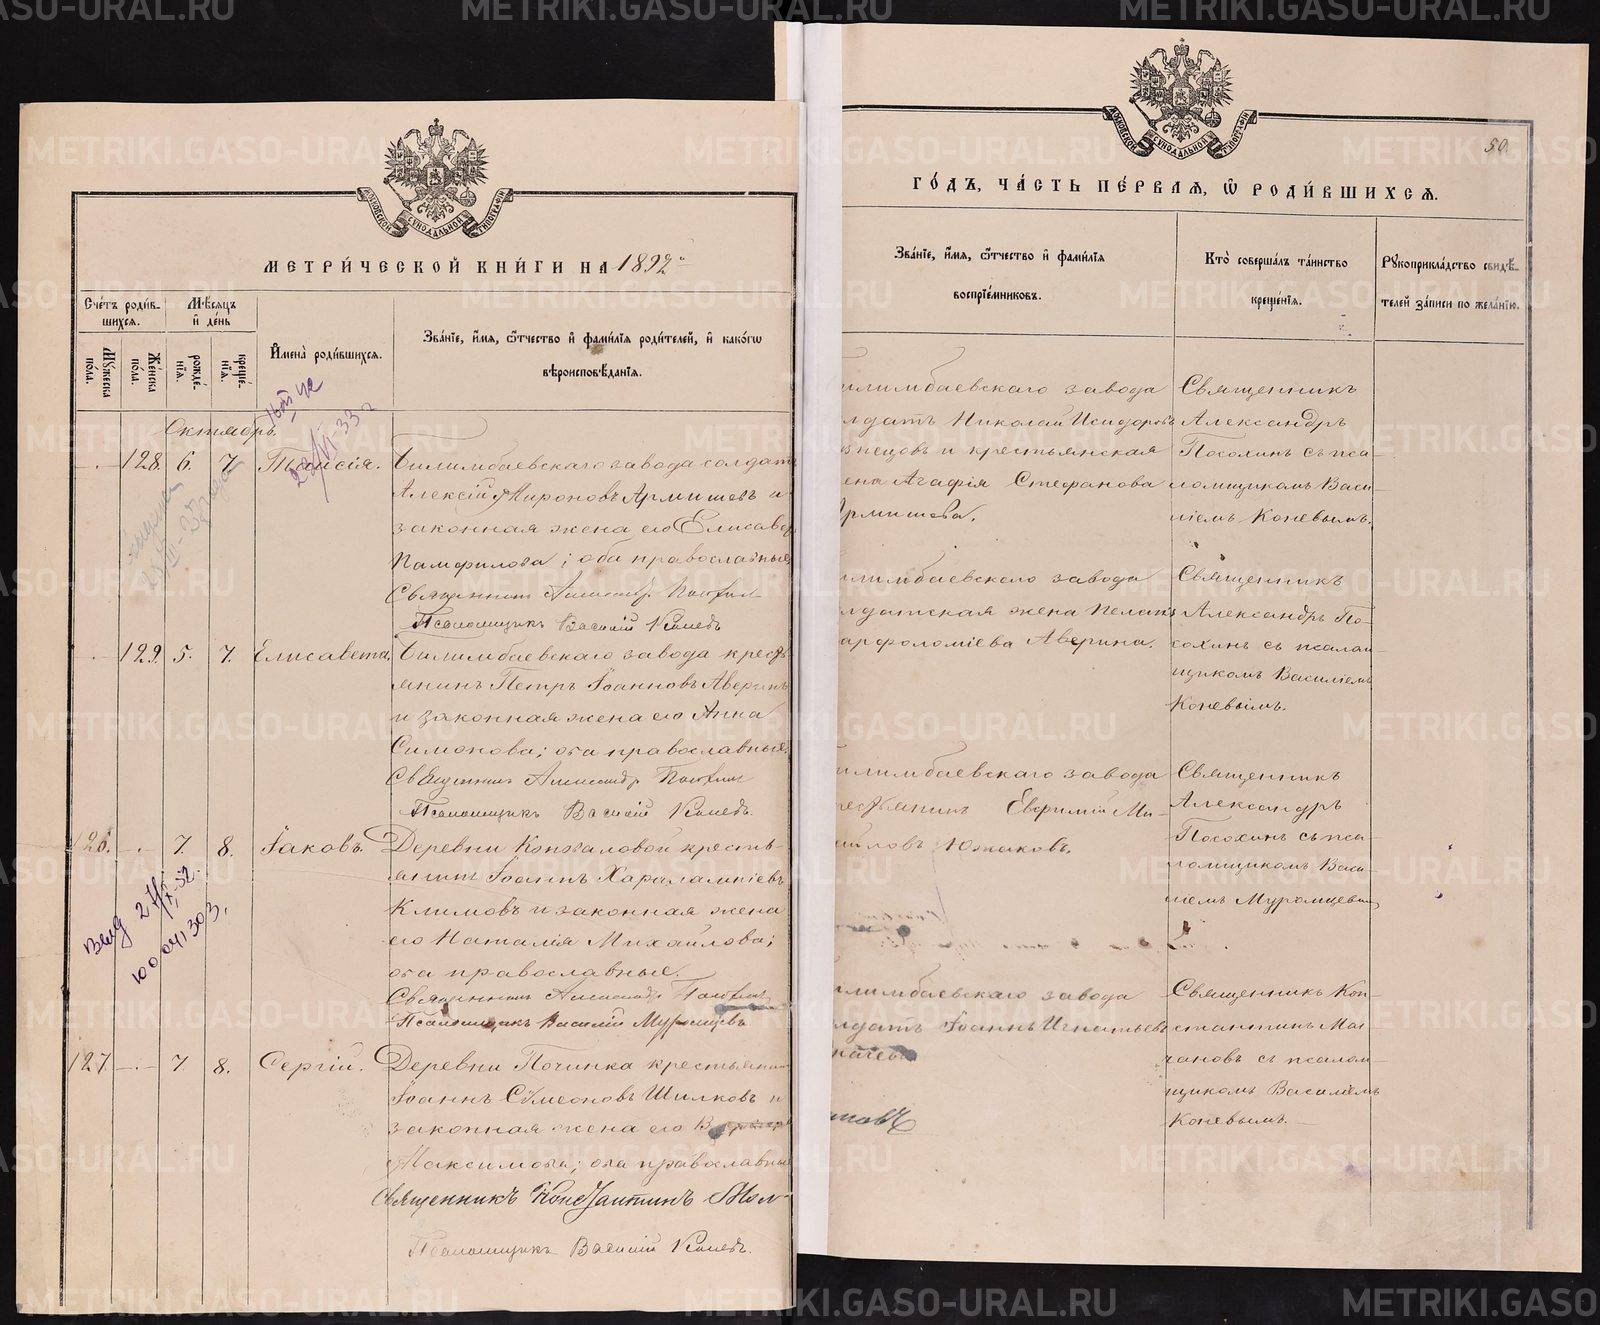 МЕТРИ́ЧЕСКОЙ КНИ́ГИ НА 1892й
Сче́тъ роди́в-
шихся.
Мѣ́сяцъ
и҆ де́нь
Мꙋ́жеска
по́ла.
Же́нска
по́ла.
рожде́-
нїя.
креще́-
нїя.
И҆мена̀ роди́вшихся.
Зва́нїе, и҆́мя, ѻ҆́тчество и҆ фами́лїя роди́телей, и҆ како́гѡ
вѣроисповѣ́данїя.
Октябрь
128. 6. 7. Таисія. Билимбаевскаго завода солдатъ
Алексій Мироновъ Армишевъ и
законная жена его Елисавета
Памфилова; оба православные
Священникъ Александръ Посохинъ
Псаломщикъ Василій Коневъ
129. 5. 7. Елисавета. Билимбаевскаго завода кресть
янинъ Петръ Іоанновъ Аверинъ
и законная жена его Анна
Симонова; оба православные.
Священникъ Александръ Посохинъ
Псаломщикъ Василій Коневъ.
126. 7. 8. Іаковъ. Деревни Коноваловой кресть-
янинъ Іоаннъ Харалампіевъ
Климовъ и законная жена
его Наталія Михайлова;
оба православные.
Священникъ Александръ Посохинъ
Псаломщикъ Василій Муромцевъ
Выд 27/IX-52.
Ю 041303.
127. 7. 8. Сергій. Деревни Починка крестьянинъ
Іоаннъ Сѵмеоновъ Шилковъ и
законная жена его
Максимова; оба православны
Священникъ Константинъ Мол
Псаломщикъ Василій Коневъ.
50.
ГО́ДЪ, ЧА́СТЬ ПЕ́РВАЯ, Ѽ РОДИ́ВШИХСЯ.
Зва́нїе, и҆́мя, ѻ҆́тчество и҆ фами́лїя
воспрїе́мниковъ.
Кто̀ соверша́лъ та́инство
креще́нїя.
Рꙋкоприкла́дство свидѣ́-
телей за́писи по жела́нїю.
илимбаевскаго завода
лдатъ Николай Исидоровъ
знецовъ и крестьянская
ена Агафія Стефанова
рмишева.
Священникъ
Александръ
Посохинъ съ пса-
ломщикомъ Васи-
ліемъ Коневымъ.
илимбаевскаго завода
лдатская жена Пелагія
арѳоломіева Аверина.
Священникъ
Александръ По-
сохинъ съ псалом-
щикомъ Василіемъ
Коневымъ.
илимбаевскаго завода
рестьянинъ Евфимій Ми-
айловъ Южаковъ.
Священникъ
Александръ
Посохинъ съ пса-
ломщикомъ Васи-
ліемъ Муромцевым
илимбаевскаго завода
лдатъ Іоаннъ Игнатьевъ
Священникъ Кон-
стантинъ Мол-
чановъ съ псалом-
щикомъ Василіемъ
Коневымъ.
ановъ
METRIKI.GASO-URAL.RU